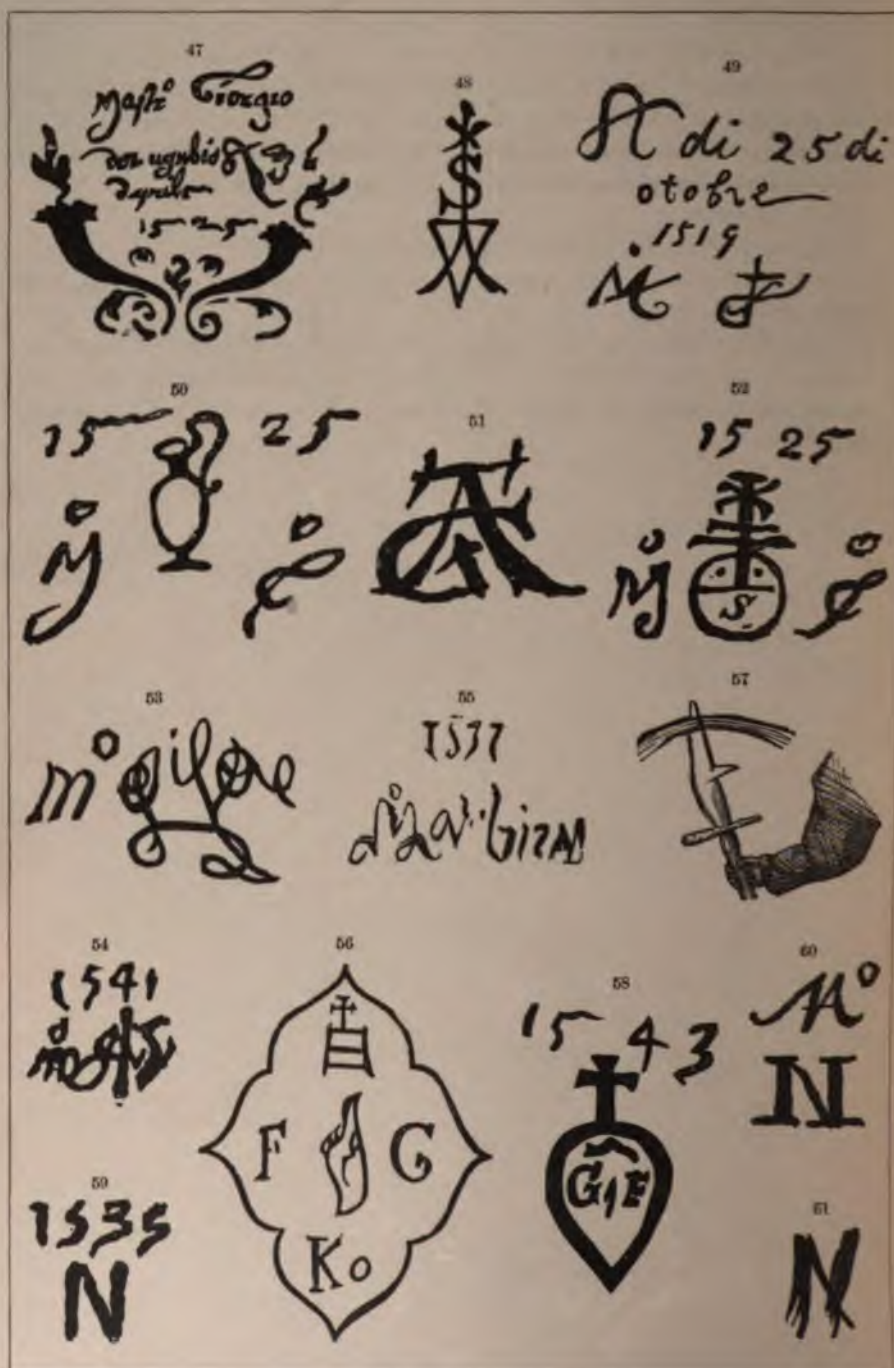 47
Mastº Giorgio
da ugubio
daprile
1525
48
S
49
A di 25 di
otobre
1519
Mº G
50
15 25
Mº Gº
51
52
15 25
Mº Gº
S
53
mº
55
1537
57
54
1541
56
F G
Ko
58
1543
G F
60
Mº
N
59
1535
N
61
N